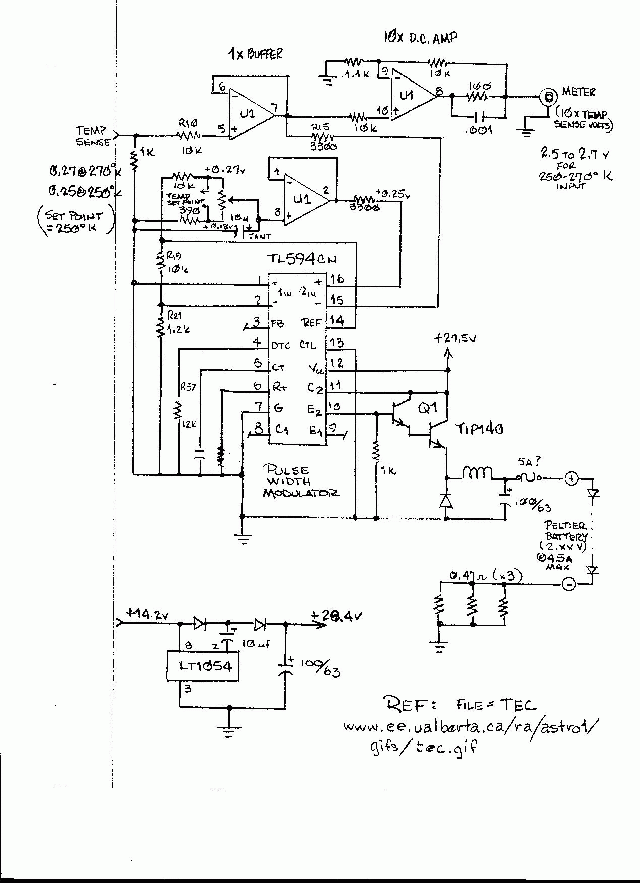 10x D.C. AMP
1x BUFFER
1.1K
10K
9
8
100
6
7
U1
5
+
R10
10K
10
+
U1
10K
.001
METER
(10x TEMP
SENSE VOLTS)
TEMP
SENSE
1K
R15
3300
2.5 TO 2.7 V
FOR
250-270°K
INPUT
0.27@270°K
0.25@250°K
(SET POINT
= 250°K)
+0.27V
10K
TEMP
SET POINT
390
TANT
2
3
U1
3300
+0.25V
R19
10K
R21
1.2K
TL594CN
1
2
3
4
5
6
7
8
1IN
2IN
FB
DTC
CT
RT
G
C1
REF
CTL
VCC
C2
E2
E1
16
15
14
13
12
11
10
9
R37
12K
+27.5V
Q1
TIP140
1K
PULSE
WIDTH
MODULATOR
5A?
100/63
PELTIER
BATTERY
(2.XX V)
@4.5A
MAX
0.47Ω (x3)
+14.2V
+28.4V
8
2
10uf
LT1054
3
100/63
REF: FILE= TEC
www.ee.ualberta.ca/ra/astro1/
gifs/tec.gif